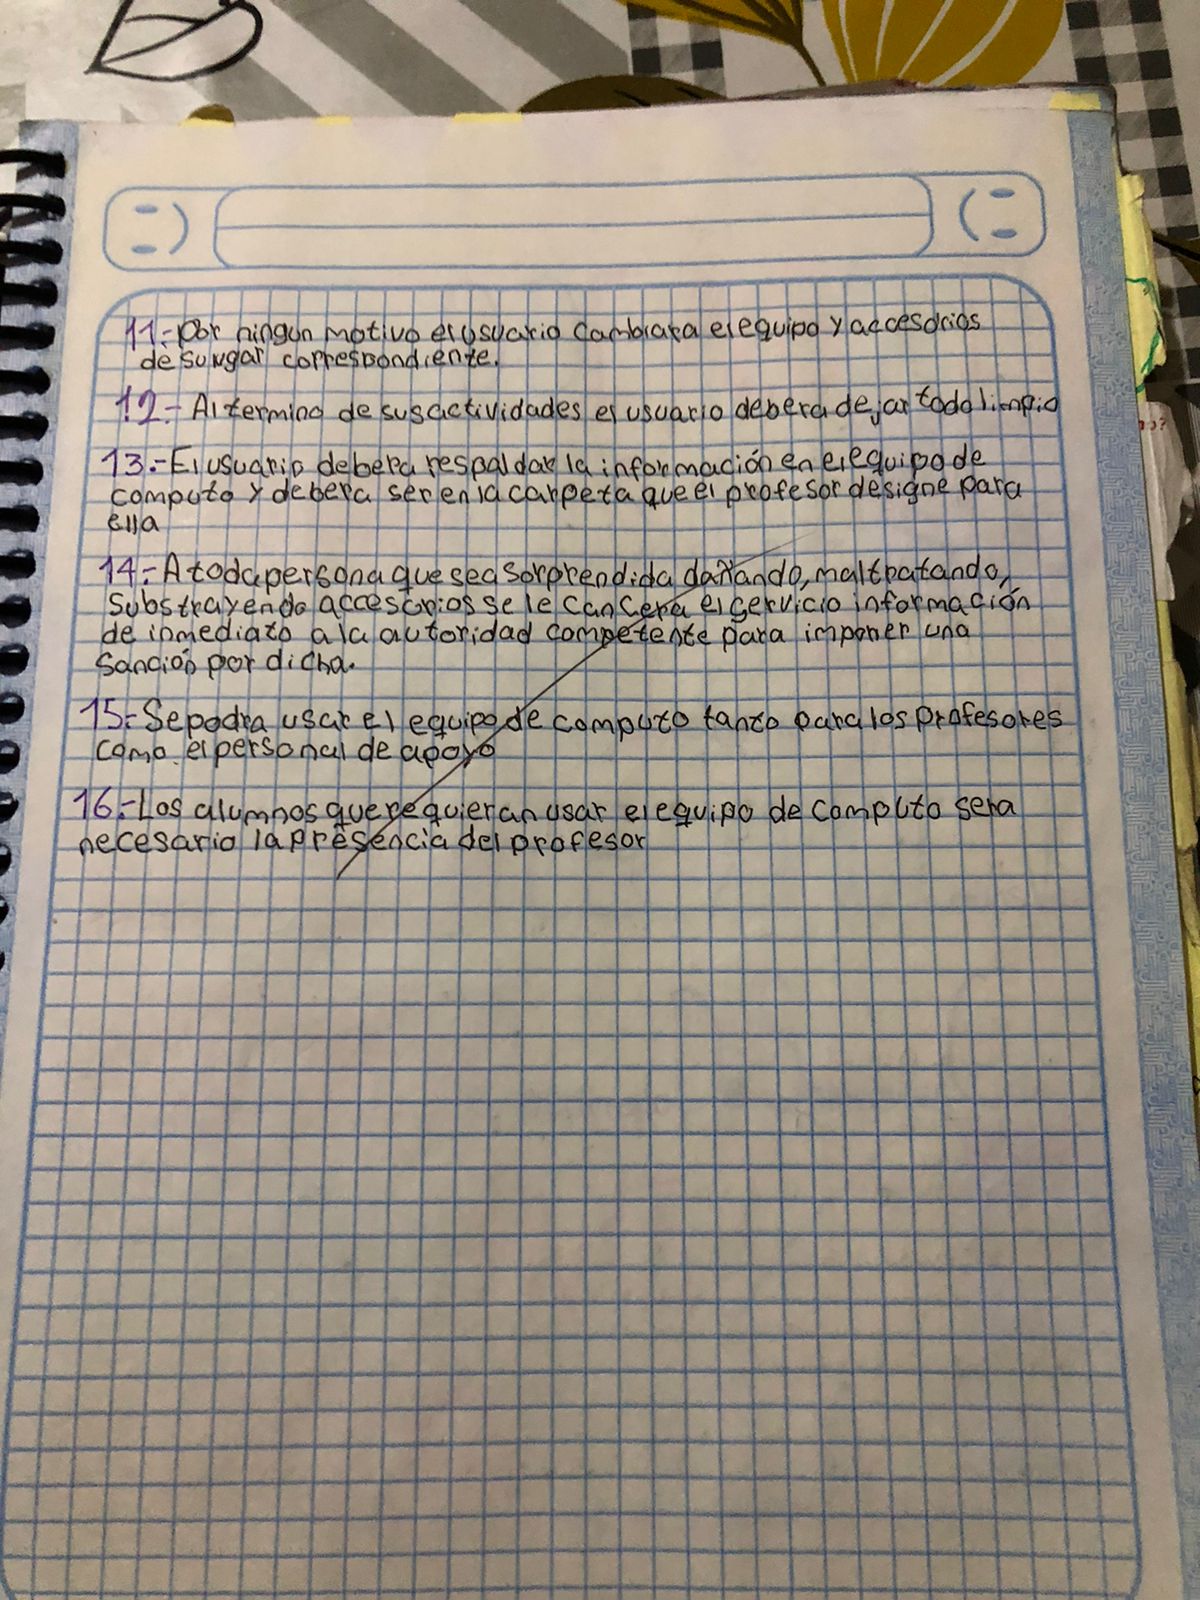 11.- Por ningun motivo el usuario cambiara el equipo y accesorios
de su lugar correspondiente.
12.- Al termino de sus actividades el usuario debera dejar todo limpio
13.- El usuario debera respaldar la información en el equipo de
computo y debera ser en la carpeta que el profesor designe para
ella
14.- A toda persona que sea sorprendida dañando, maltratando,
Substrayendo accesorios se le cancera el servicio información
de inmediato a la autoridad competente para imponer una
Sanción por dicha.
15.- Se podra usar el equipo de computo tanto para los profesores
como el personal de apoyo
16.- Los alumnos que requieran usar el equipo de computo sera
necesario la presencia del profesor